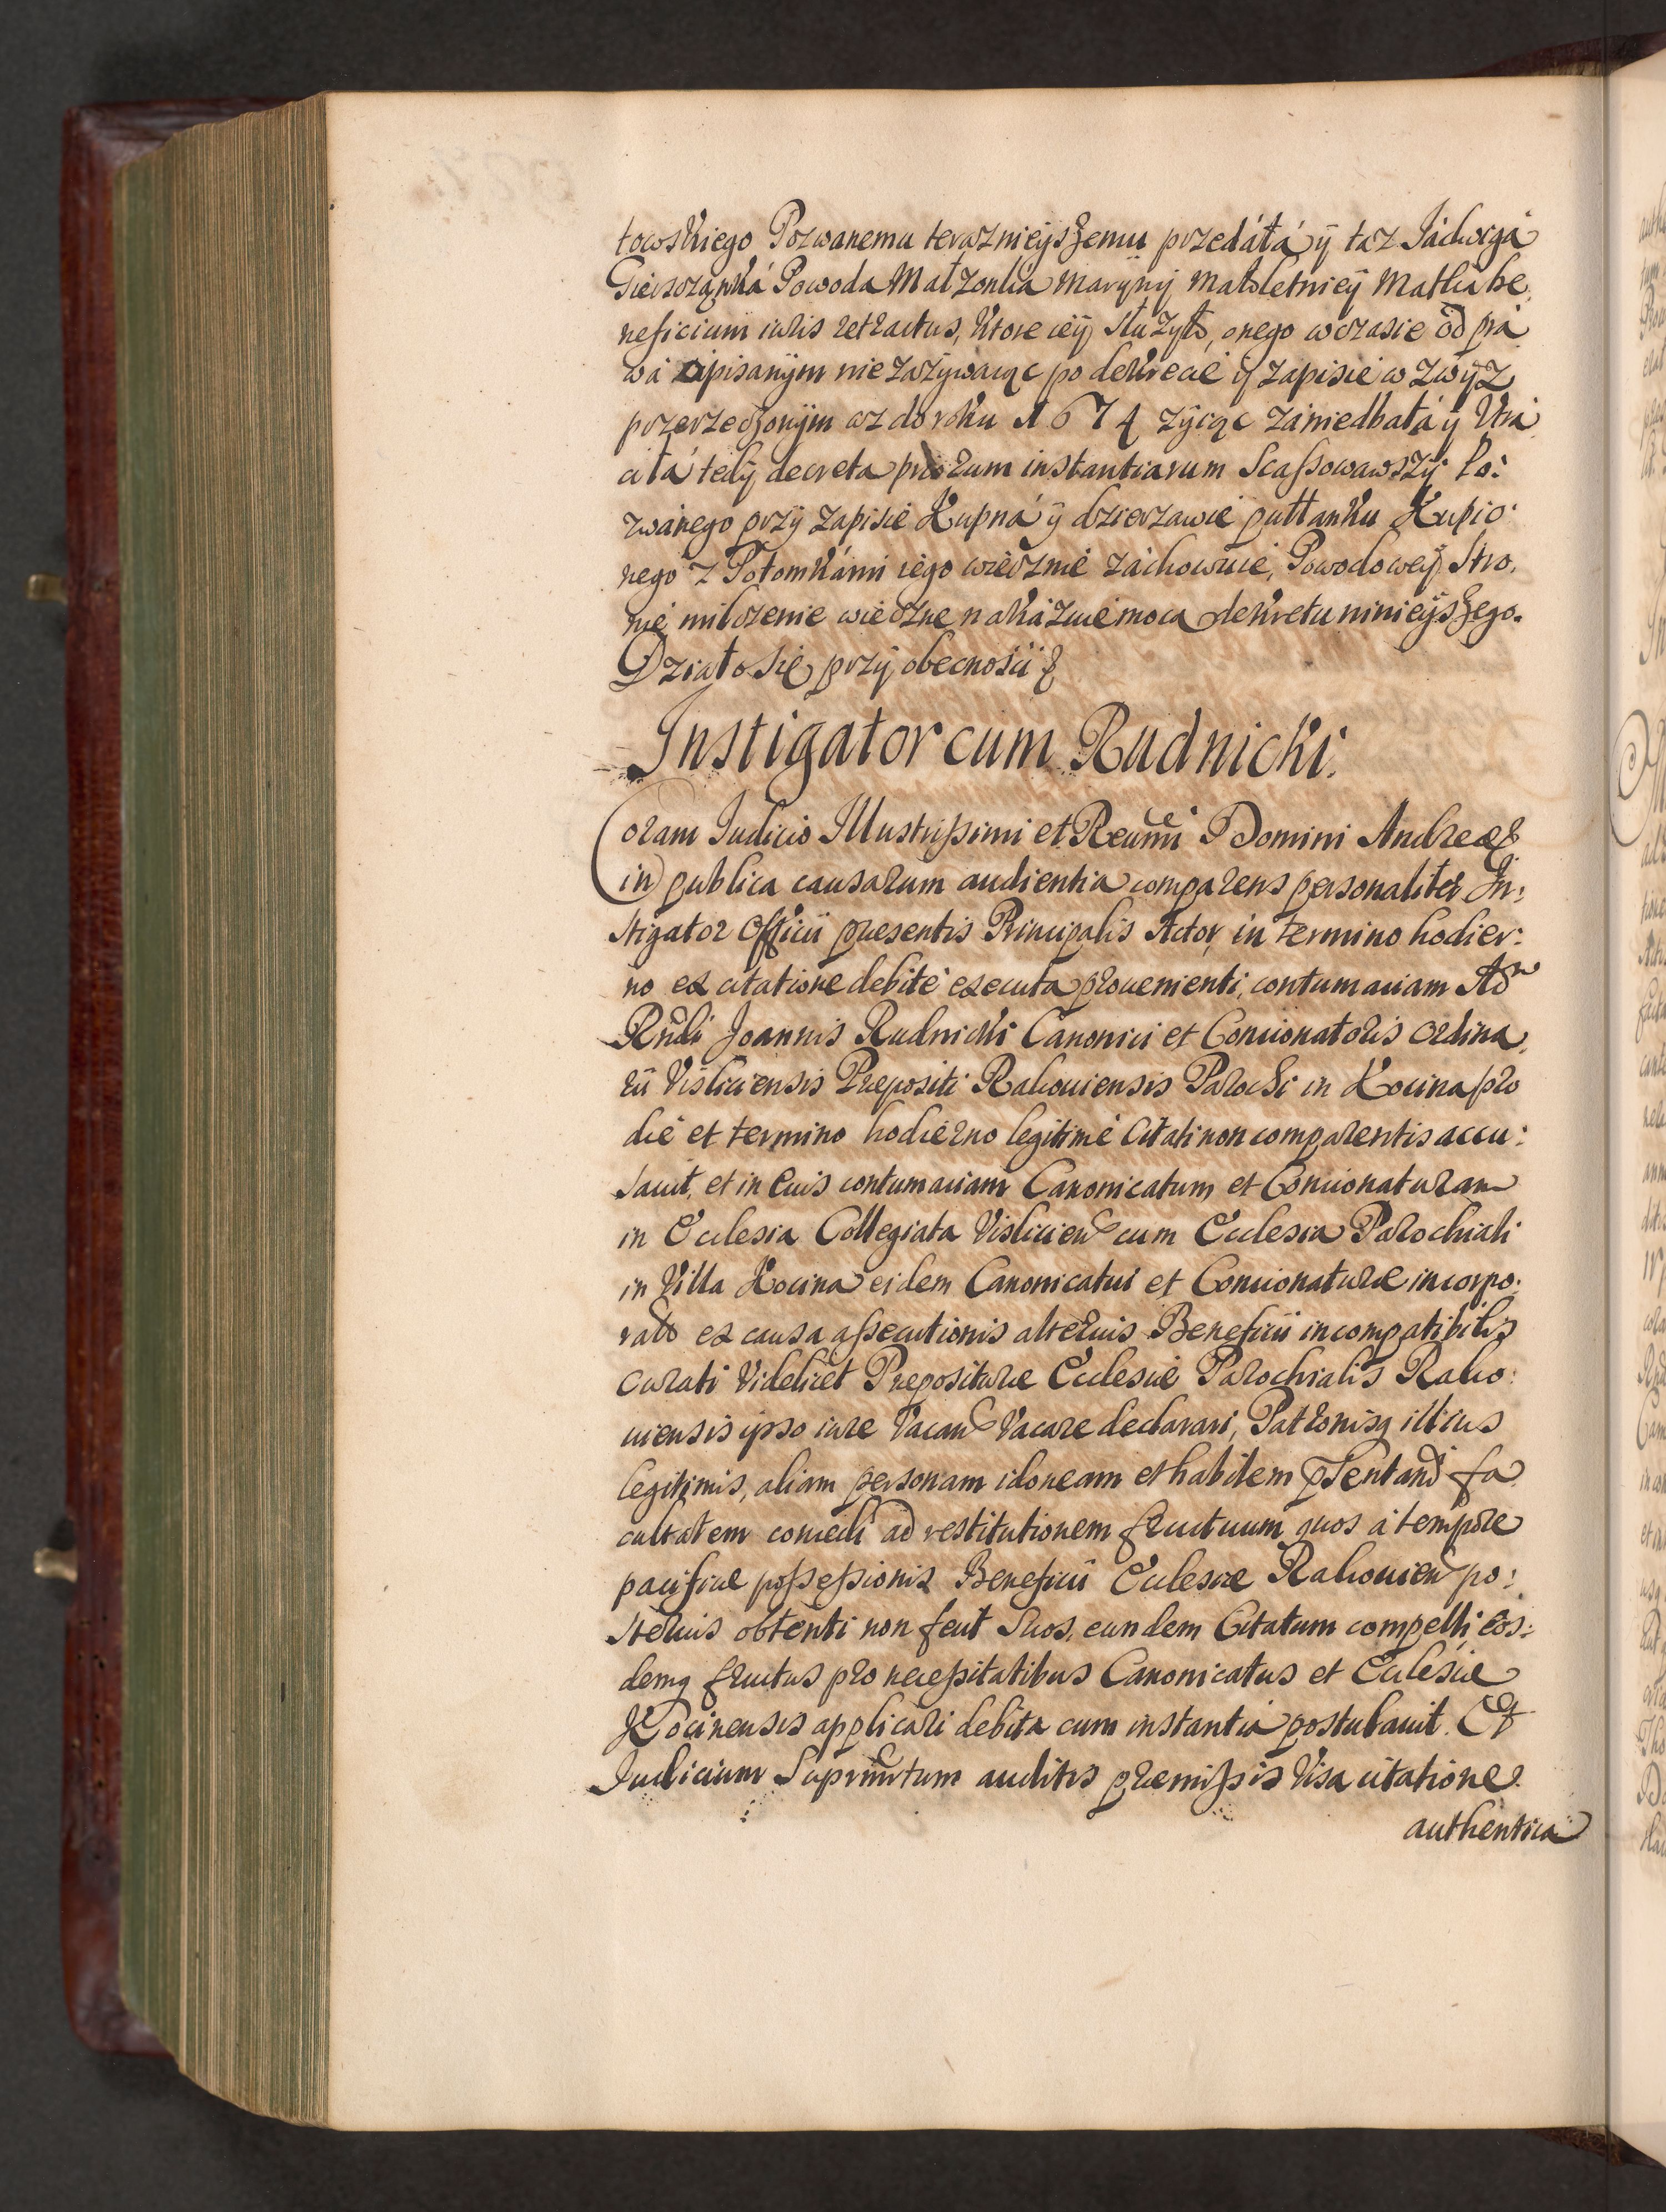 towskiego Pozwanemu teraznieyszemu przedáłá ÿ taz Jádwigá
Gierszązká Powoda Małzonka Maryny małoletnieÿ Matka be,
neficium iuris retractus, ktore ieÿ słuzyło, onego wczasie od prá
wá opisanÿm niezazywaiąc po dekrecie ÿ zapisie w zwÿz
przerzeczonÿm az do roku 1674 zÿiąc zániedbałá ÿ Utrá
ciłá tedÿ decreta priorum instantiarum Scassowawszÿ Po:
zwánego przÿ zapisie Kupná ÿ dzierzawie pułłanku Kupio:
nego z Potomkámi iego wiecznie záchowuie, Powodoweÿ Stro,
nie milczenie wieczne nakázuie moca dekretu ninieÿszego.
Działo się przÿ obecnośii &
Instigator cum Rudnicki.
Coram Judicio Illustrissimi et Reumi Domini Andreæ &
in publica causarum audientia comparens personaliter In:
stigator Officii præsentis Principalis Actor, in termino hodier:
no ex citatione debite executa prouenienti, contumaciam Adm
Rndi Joannis Rudnicki Canonici et Concionatoris Ordina,
rii Visliciensis Præpositi Rakouiensis Parochi in Kocina pro
die et termino hodierno legitime Citati non comparentis accu:
sauit, et in Euis contumaciam Canonicatum et Concionaturam
in Ecclesia Collegiata Vislicien cum Ecclesia Parochiali
in Villa Kocina eidem Canonicatui et Concionaturæ incorpo:
rato ex causa assecutionis alterius Beneficii incompatibilis
curati Videlicet Præpositure Ecclesiæ Parochialis Rako:
uiensis ipso iure Vacan Vacare declarari, Patronisq illius
legitimis, aliam personam idoneam et habilem pSentand fa
cultatem concedi ad restitutionem fructuum quos á tempore
pacificæ possessionis Beneficii Ecclesiæ Rakouien po:
sterius obtenti non fecit Suos, eundem Citatum compelli, eos:
demq fructus pro necessitatibus Canonicatus et Ecclesiæ
Kocinensis applicari debita cum instantia postulauit. Et
Judicium Suprmtum auditis præmissis Visa citatione
authentica